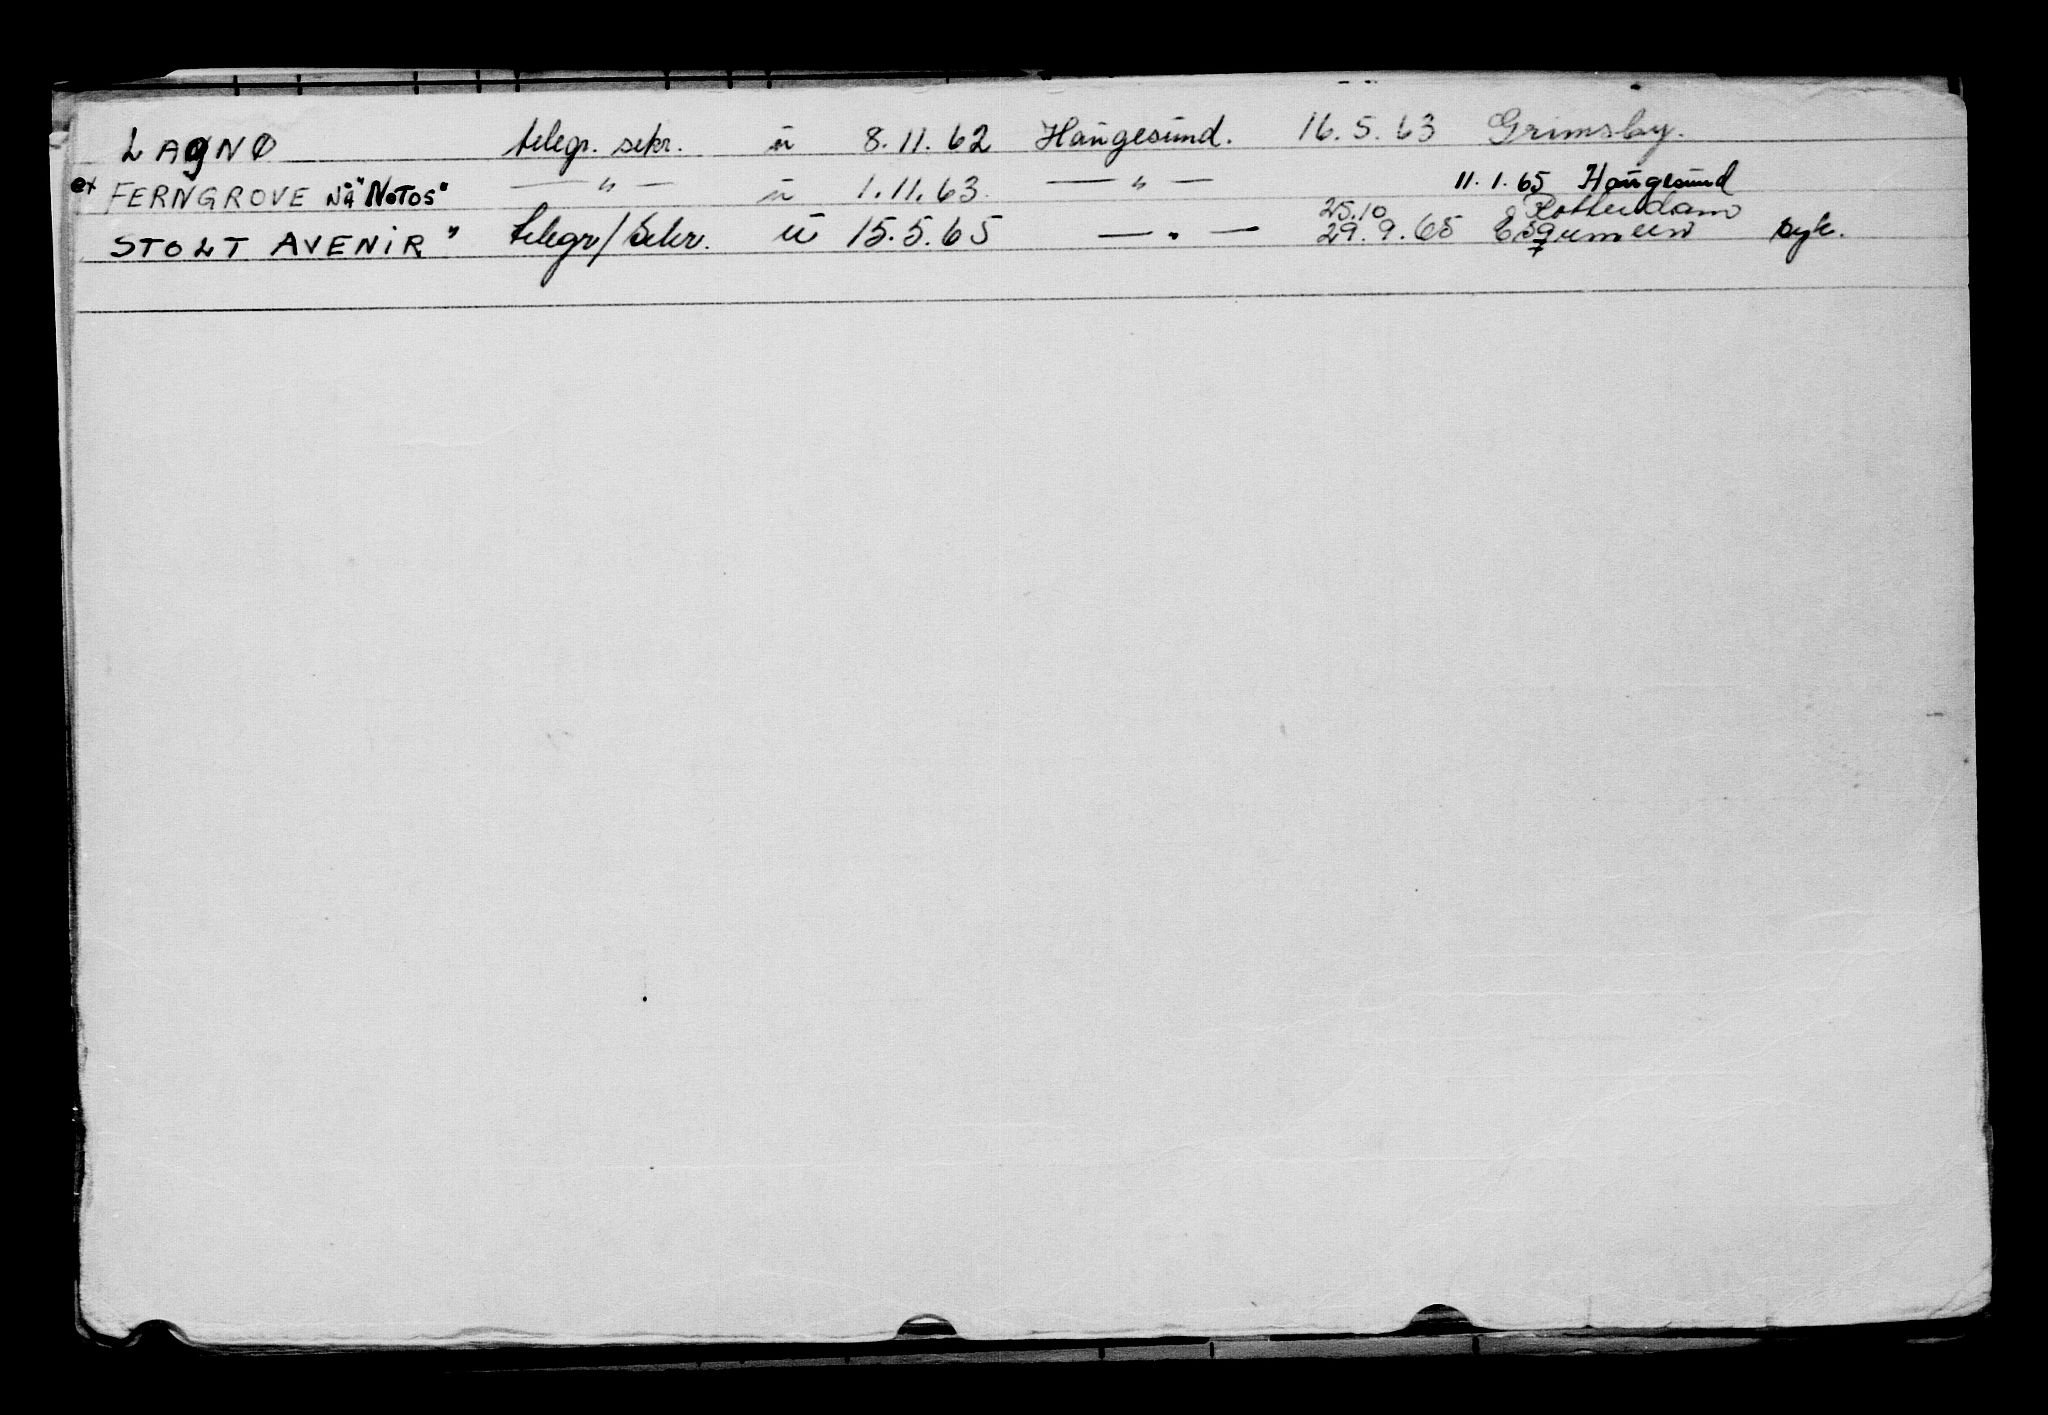 LAGNØ telegr. sekr. ū 8.11.62 Haugesund. 16.5.63 Grimsby.
ex FERNGROVE nå "NOTOS" — " — ū 1.11.63. — " — 11.1.65 Haugesund
25.10 Rotterdam
STOLT AVENIR" telegr/Sekr. ū 15.5.65 — " — 29.9.65 syk.